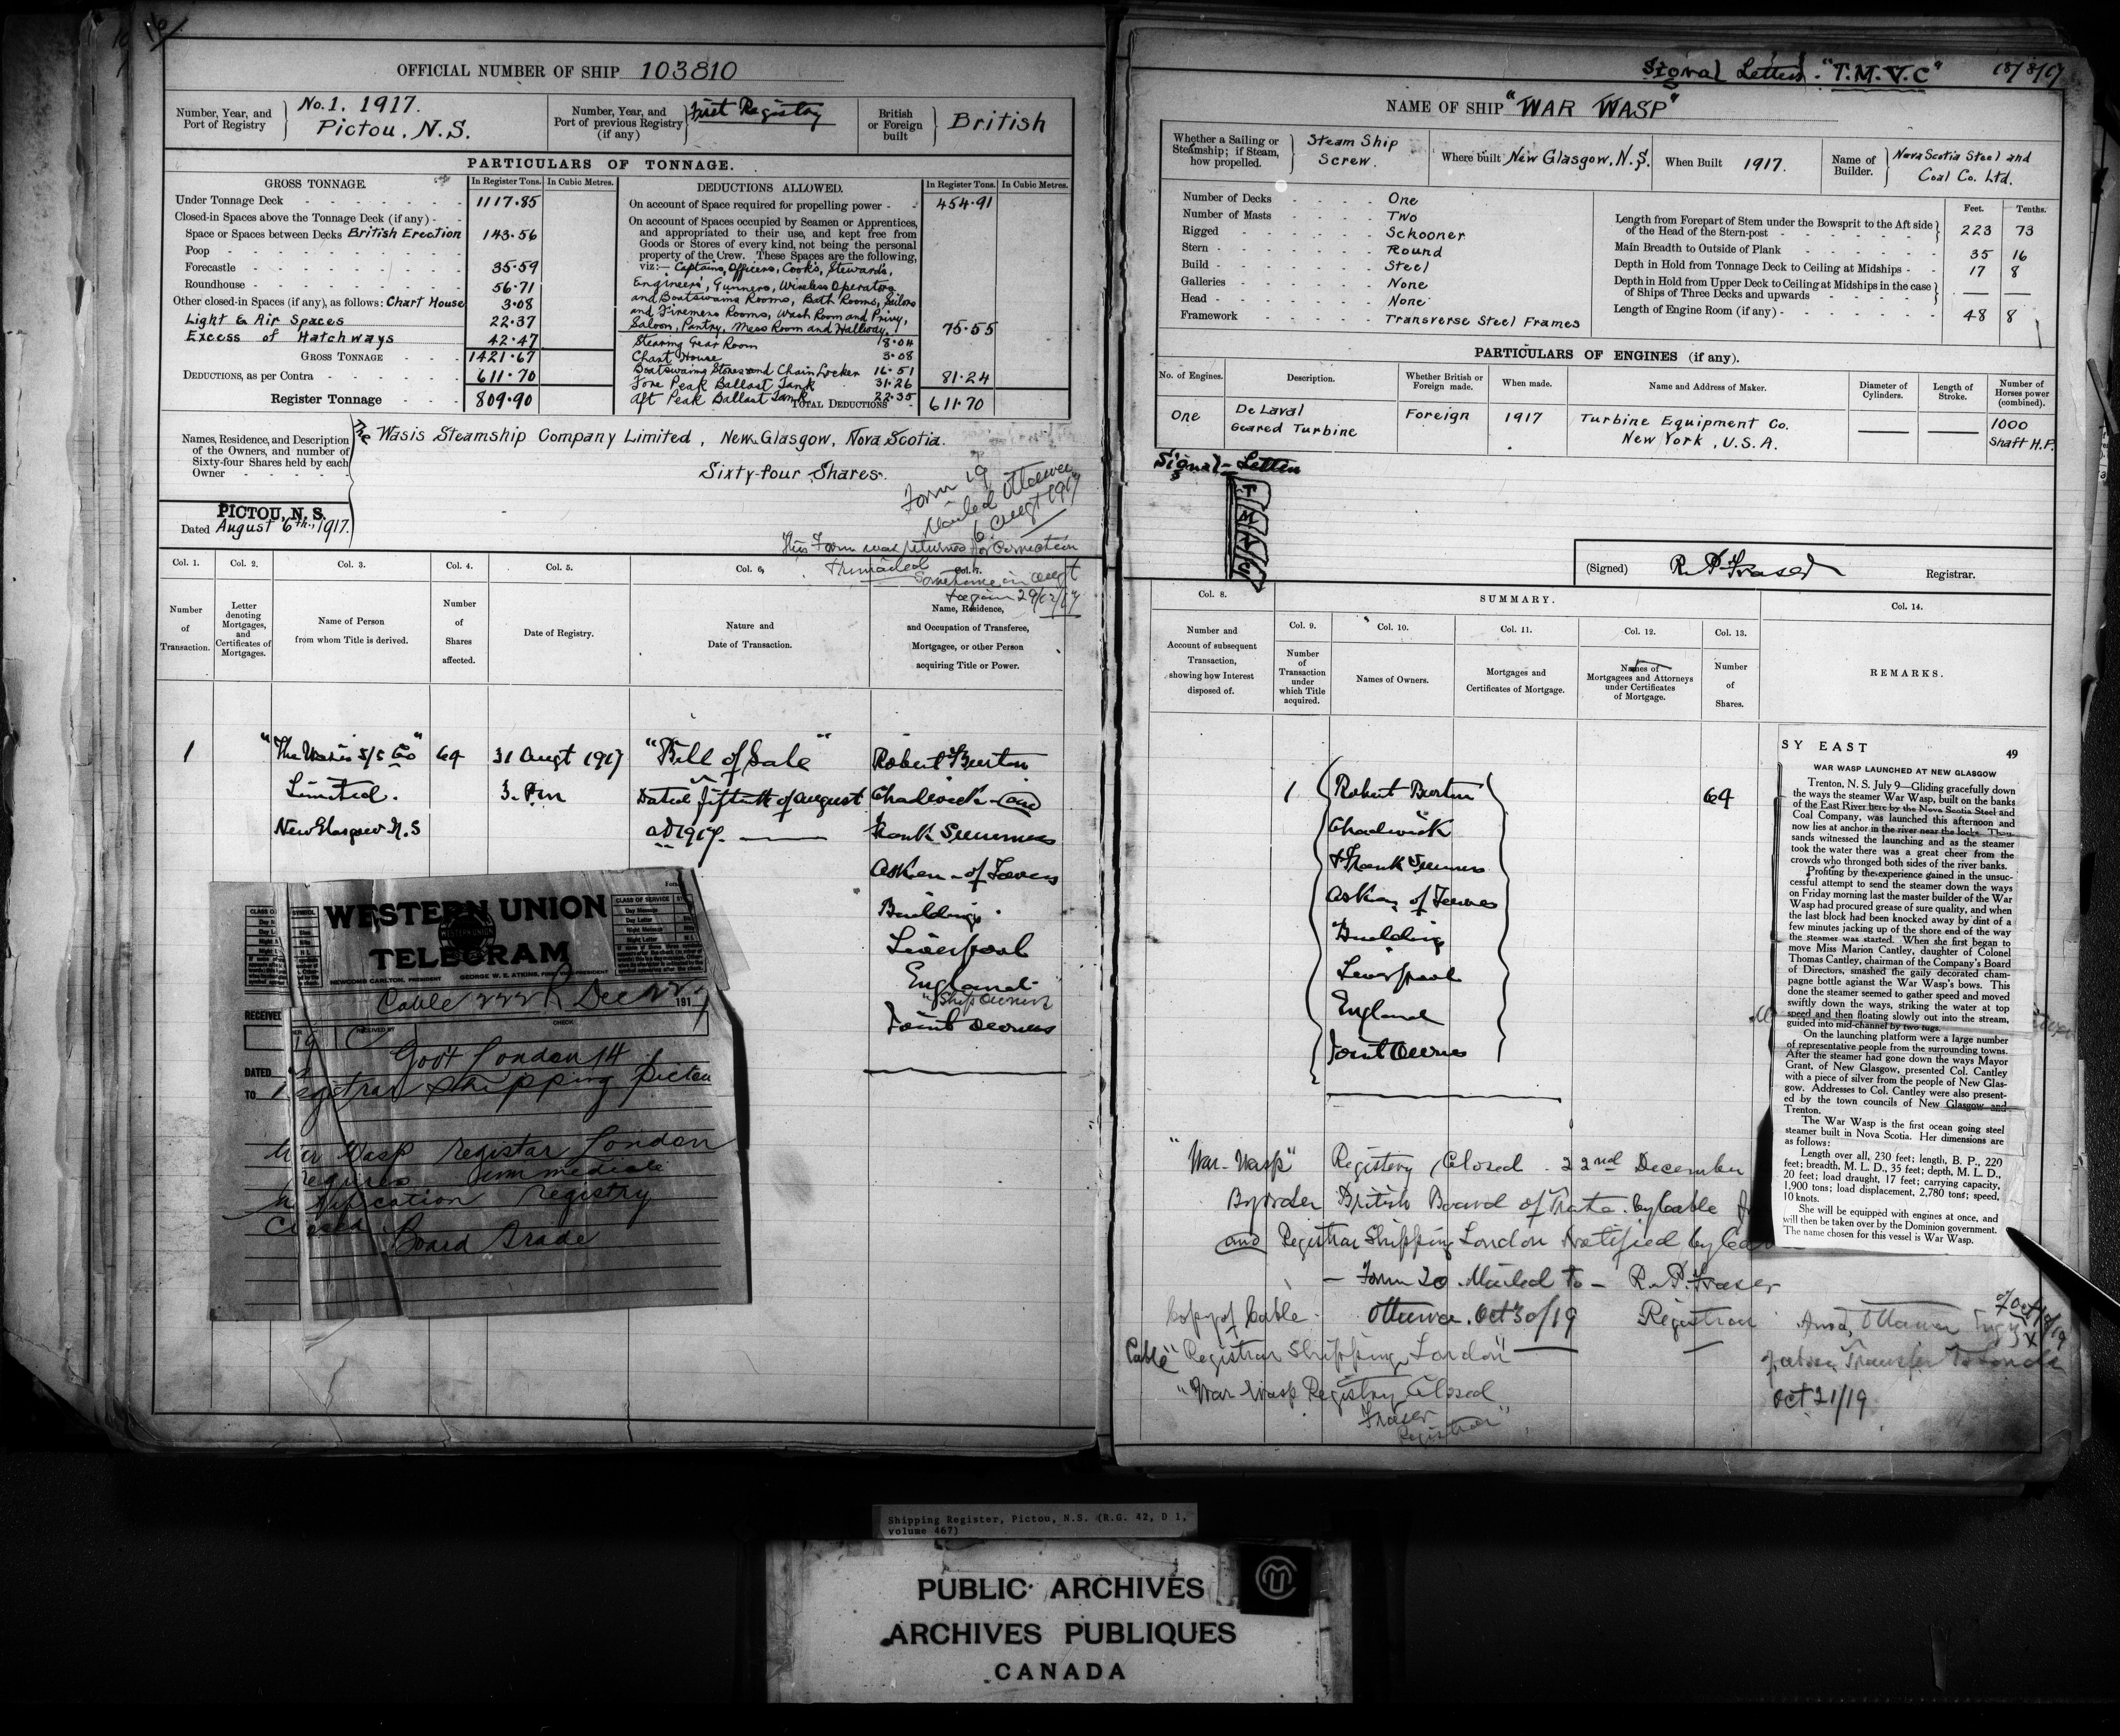 16
OFFICIAL NUMBER OF SHIP 103810
Number, Year, and Port of Registry
No. 1. 1917.
Pictou, N.S.
Number, Year, and Port of previous Registry (if any)
First Registry
British or Foreign built
British
PARTICULARS OF TONNAGE.
GROSS TONNAGE.
In Register Tons.
In Cubic Metres.
Under Tonnage Deck 1117.85
Closed-in Spaces above the Tonnage Deck (if any)
Space or Spaces between Decks British Erection 143.56
Poop
Forecastle 35.59
Roundhouse 56.71
Other closed-in Spaces (if any), as follows: Chart House 3.08
Light & Air Spaces 22.37
Excess of Hatchways 42.47
GROSS TONNAGE 1421.67
DEDUCTIONS, as per Contra 611.70
Register Tonnage 809.90
DEDUCTIONS ALLOWED.
In Register Tons.
In Cubic Metres.
On account of Space required for propelling power 454.91
On account of Spaces occupied by Seamen or Apprentices,
and appropriated to their use, and kept free from
Goods or Stores of every kind, not being the personal
property of the Crew. These Spaces are the following,
viz:— Captains, Officers, Cook's, Stewards,
Engineers', Gunners, Wireless Operators
and Boatswains Rooms, Bath Rooms, Sailors
and Firemens Rooms, Wash Room and Privy,
Saloon, Pantry, Mess Room and Hallway. 75.55
Steering Gear Room 8.04
Chart House 3.08
Boatswains Stores and Chain Locker 16.51
Fore Peak Ballast Tank 31.26 81.24
Aft Peak Ballast Tank 22.35
TOTAL DEDUCTIONS 611.70
Names, Residence, and Description of the Owners, and number of Sixty-four Shares held by each Owner
The Wasis Steamship Company Limited, New Glasgow, Nova Scotia.
Sixty-four Shares.
Form 19
Mailed Ottawa
6. Augt 1917
This Form was returned for Correction
& remailed
Sometime in Augt
& again 29/12/17
PICTOU, N. S.
Dated August 6th., 1917.
Col. 1.
Number of Transaction.
Col. 2.
Letter denoting Mortgages, and Certificates of Mortgages.
Col. 3.
Name of Person from whom Title is derived.
Col. 4.
Number of Shares affected.
Col. 5.
Date of Registry.
Col. 6.
Nature and Date of Transaction.
Col. 7.
Name, Residence, and Occupation of Transferee, Mortgagee, or other Person acquiring Title or Power.
1
"The Wasis S/S Co"
Limited.
New Glasgow N.S
64
31 Augt 1917
3. Pm
"Bill of Sale"
Dated fiftenth of August
AD 1917.
Robert Burton
Chadwick and
Frank Summers
Askew of Towers
Buildings
Liverpool
England
"Ship Owners
Joint Owners
WESTERN UNION
TELEGRAM
WESTERN UNION
NEWCOMB CARLTON, PRESIDENT
GEORGE W. E. ATKINS, FIRST VICE-PRESIDENT
CLASS OF SERVICE
Day Message
Day Letter
Night Message
Night Letter
Cable 222 R Dec 22 1917
RECEIVED
RECEIVED BY
CHECK
DATED
Govt London 14
TO Registrar Shipping Pictou
War Wasp Registar London
requires immediate
notification Registry
Closed
Board Trade
Signal Letters. "T.M.V.C" 18/8/17
NAME OF SHIP "WAR WASP"
Whether a Sailing or Steamship; if Steam, how propelled.
Steam Ship
Screw.
Where built New Glasgow, N.S.
When Built 1917.
Name of Builder.
Nova Scotia Steel and
Coal Co. Ltd.
Number of Decks One
Number of Masts Two
Rigged Schooner
Stern Round
Build Steel
Galleries None
Head None
Framework Transverse Steel Frames
Feet. Tenths.
Length from Forepart of Stem under the Bowsprit to the Aft side of the Head of the Stern-post 223 73
Main Breadth to Outside of Plank 35 16
Depth in Hold from Tonnage Deck to Ceiling at Midships 17 8
Depth in Hold from Upper Deck to Ceiling at Midships in the case of Ships of Three Decks and upwards — —
Length of Engine Room (if any) 48 8
PARTICULARS OF ENGINES (if any).
No. of Engines.
Description.
Whether British or Foreign made.
When made.
Name and Address of Maker.
Diameter of Cylinders.
Length of Stroke.
Number of Horses power (combined).
One
De Laval
Geared Turbine
Foreign
1917
Turbine Equipment Co.
New York, U.S.A.
1000
Shaft H.P.
Signal-Letters
T M V C
(Signed) R. P. Fraser Registrar.
Col. 8.
Number and Account of subsequent Transaction, showing how Interest disposed of.
SUMMARY.
Col. 9.
Number of Transaction under which Title acquired.
Col. 10.
Names of Owners.
Col. 11.
Mortgages and Certificates of Mortgage.
Col. 12.
Names of Mortgagees and Attorneys under Certificates of Mortgage.
Col. 13.
Number of Shares.
Col. 14.
REMARKS.
1
Robert Burton
Chadwick
& Frank Summers
Askew of Towers
Building
Liverpool
England
Joint Owners
64
SY EAST 49
WAR WASP LAUNCHED AT NEW GLASGOW
Trenton, N. S. July 9—Gliding gracefully down
the ways the steamer War Wasp, built on the banks
of the East River here by the Nova Scotia Steel and
Coal Company, was launched this afternoon and
now lies at anchor in the river near the locks. Thou-
sands witnessed the launching and as the steamer
took the water there was a great cheer from the
crowds who thronged both sides of the river banks.
Profiting by the experience gained in the unsuc-
cessful attempt to send the steamer down the ways
on Friday morning last the master builder of the War
Wasp had procured grease of sure quality, and when
the last block had been knocked away by dint of a
few minutes jacking up of the shore end of the way
the steamer was started. When she first began to
move Miss Marion Cantley, daughter of Colonel
Thomas Cantley, chairman of the Company's Board
of Directors, smashed the gaily decorated cham-
pagne bottle agianst the War Wasp's bows. This
done the steamer seemed to gather speed and moved
swiftly down the ways, striking the water at top
speed and then floating slowly out into the stream,
guided into mid-channel by two tugs.
On the launching platform were a large number
of representative people from the surrounding towns.
After the steamer had gone down the ways Mayor
Grant, of New Glasgow, presented Col. Cantley
with a piece of silver from the people of New Glas-
gow. Addresses to Col. Cantley were also present-
ed by the town councils of New Glasgow and
Trenton.
The War Wasp is the first ocean going steel
steamer built in Nova Scotia. Her dimensions are
as follows:
Length over all, 230 feet; length, B. P., 220
feet; breadth, M. L. D., 35 feet; depth, M. L. D.,
20 feet; load draught, 17 feet; carrying capacity,
1,900 tons; load displacement, 2,780 tons; speed,
10 knots.
She will be equipped with engines at once, and
will then be taken over by the Dominion government.
The name chosen for this vessel is War Wasp.
"War-Wasp" Registery Closed. 22nd December
By order British Board of Trade. by Cable
and Registrar Shipping London Notified by
— Form 20. Mailed to — R. P. Fraser
Copy of Cable. Ottawa. Oct 30/19 Registrar
Cable "Registrar Shipping London"
"War Wasp Registry Closed
Fraser
Registrar"
Ottawa
Transfer to London
Oct 21/19
Shipping Register, Pictou, N.S. (R.G. 42, D 1,
volume 467)
PUBLIC ARCHIVES
ARCHIVES PUBLIQUES
CANADA